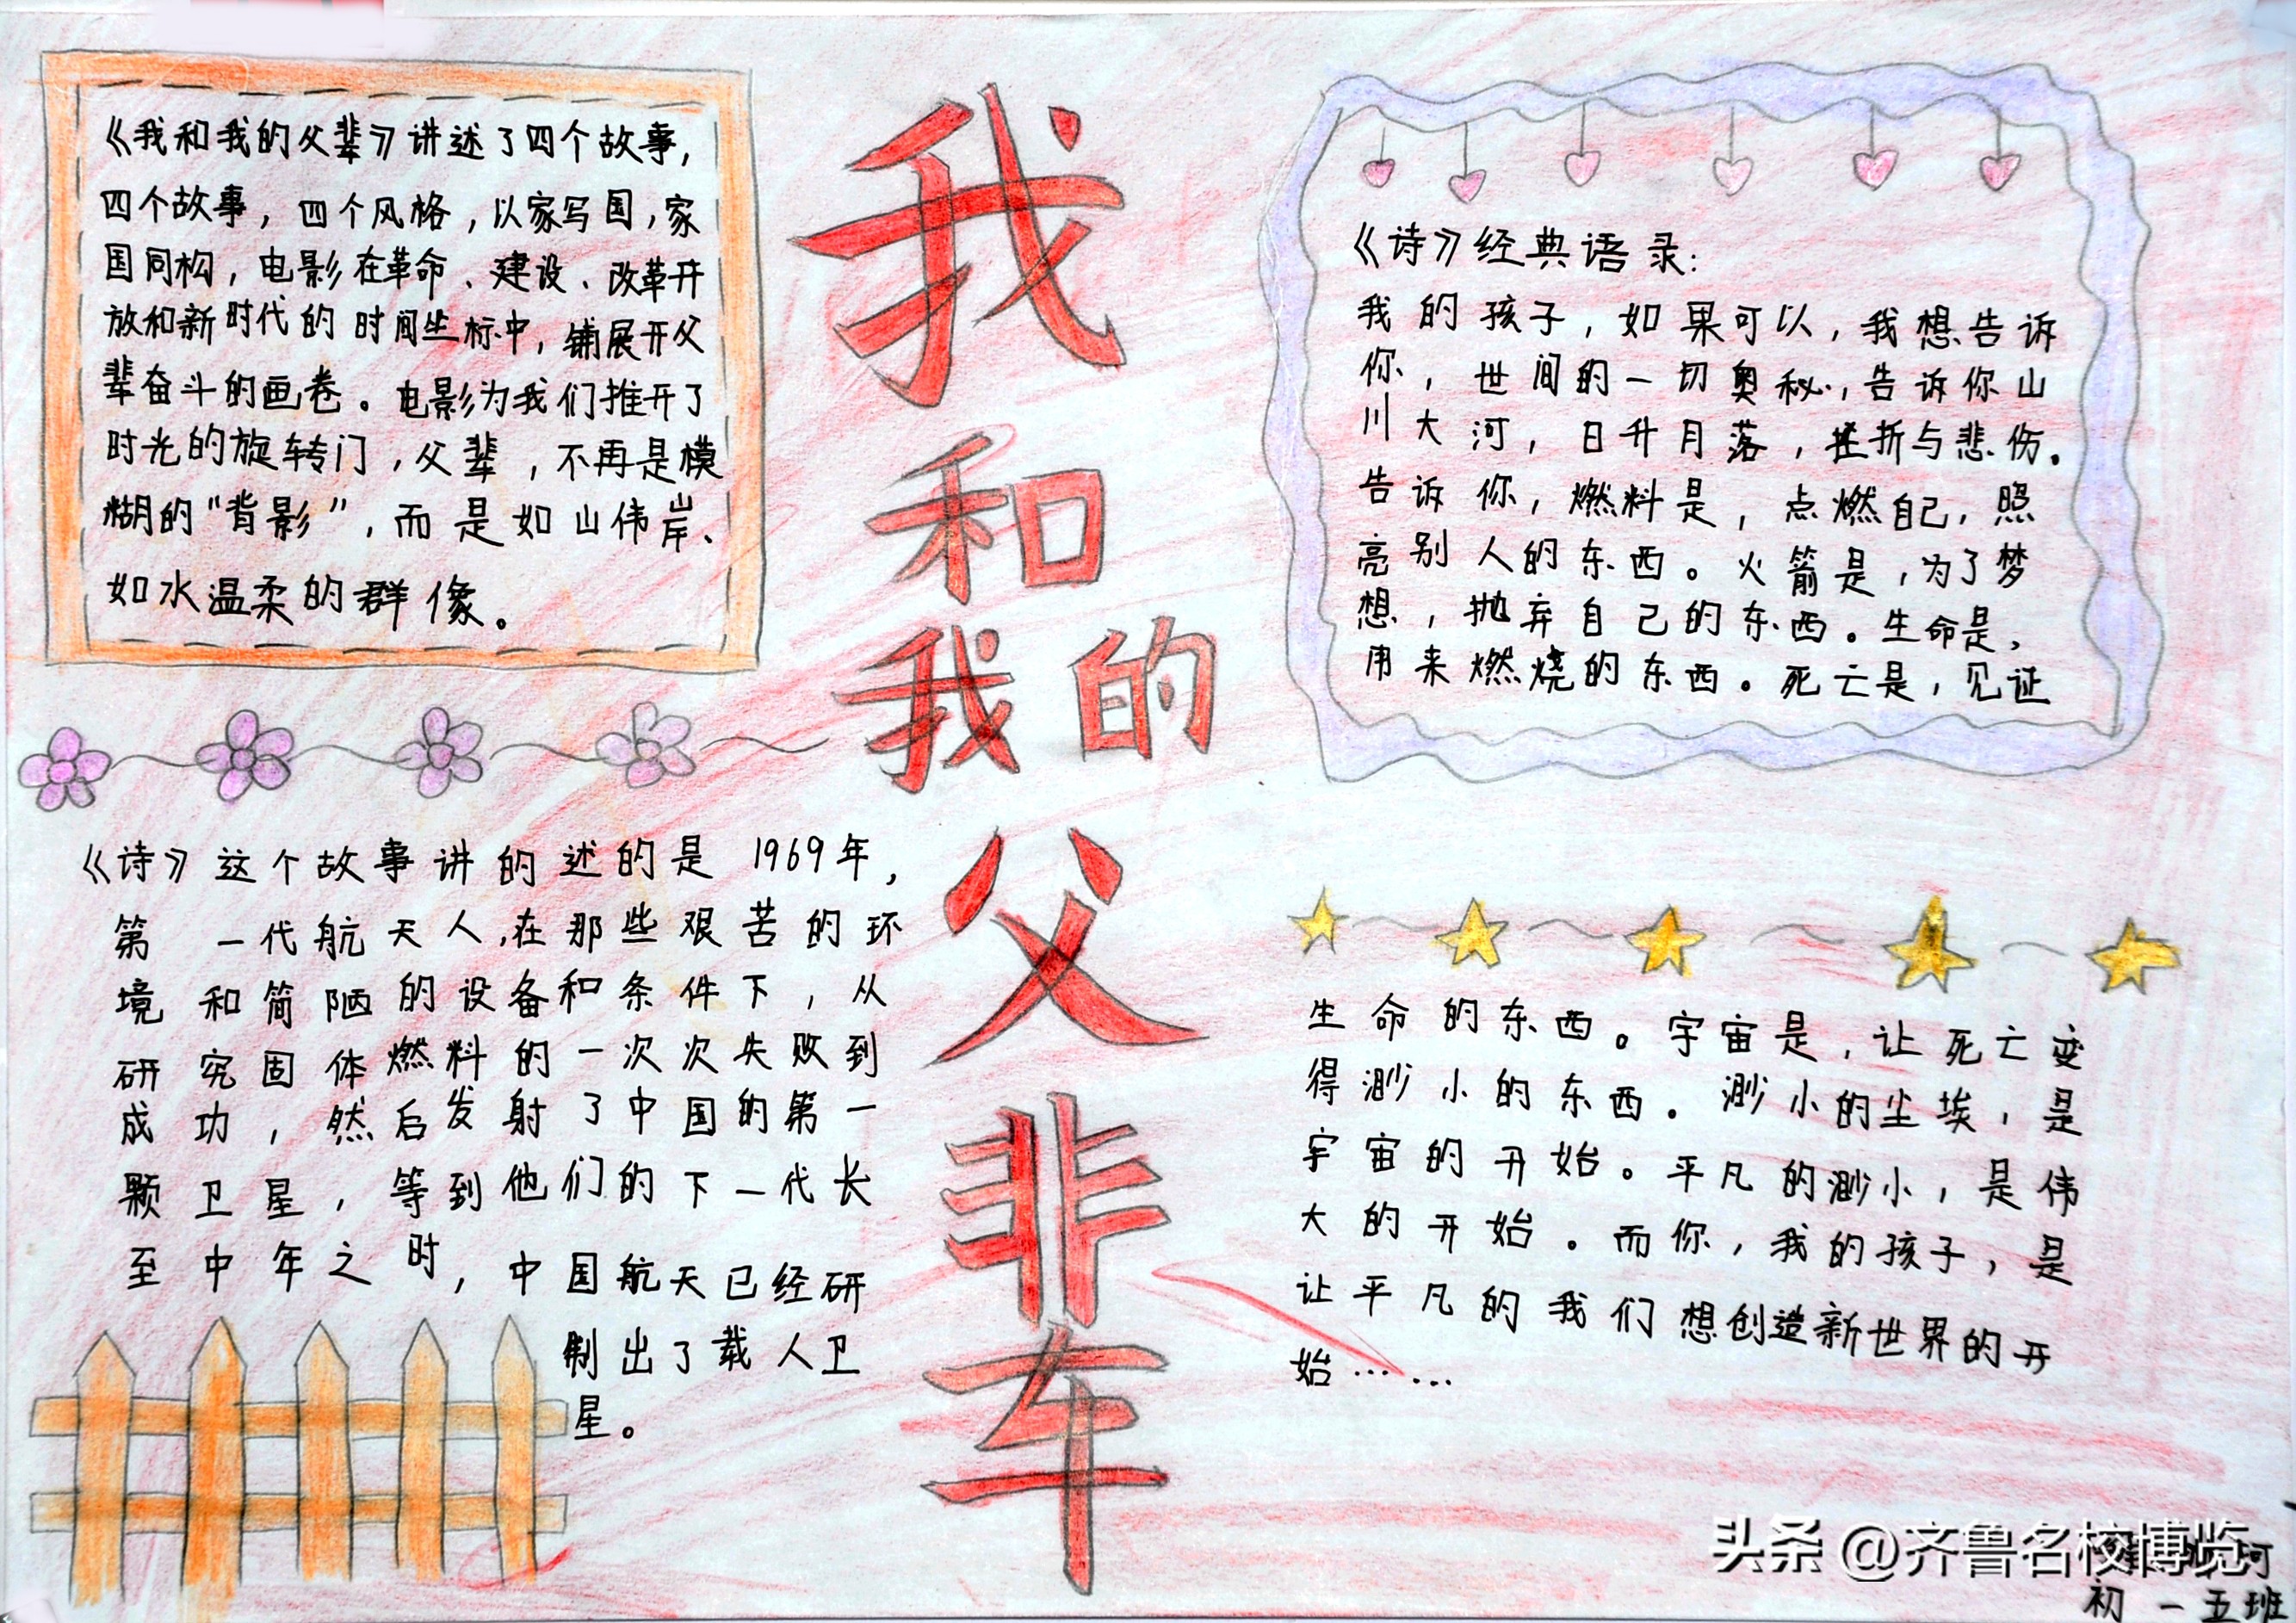 《我和我的父辈》讲述了四个故事,
四个故事，四个风格，以家写国，家
国同构，电影在革命、建设、改革开
放和新时代的时间坐标中，铺展开父
辈奋斗的画卷。电影为我们推开了
时光的旋转门，父辈，不再是模
糊的“背影”，而是如山伟岸、
如水温柔的群像。
我
和
我的
父
辈
《诗》经典语录:
我的孩子，如果可以，我想告诉
你，世间的一切奥秘，告诉你山
川大河，日升月落，挫折与悲伤。
告诉你，燃料是，点燃自己，照
亮别人的东西。火箭是，为了梦
想，抛弃自己的东西。生命是，
用来燃烧的东西。死亡是，见证
《诗》这个故事讲的述的是1969年，
第一代航天人，在那些艰苦的环
境和简陋的设备和条件下，从
研究固体燃料的一次次失败到
成功，然后发射了中国的第一
颗卫星，等到他们的下一代长
至中年之时，中国航天已经研
制出了载人卫
星。
生命的东西。宇宙是，让死亡变
得渺小的东西。渺小的尘埃，是
宇宙的开始。平凡的渺小，是伟
大的开始。而你，我的孩子，是
让平凡的我们想创造新世界的开
始……
头条 @齐鲁名校博览
珂
初一五班